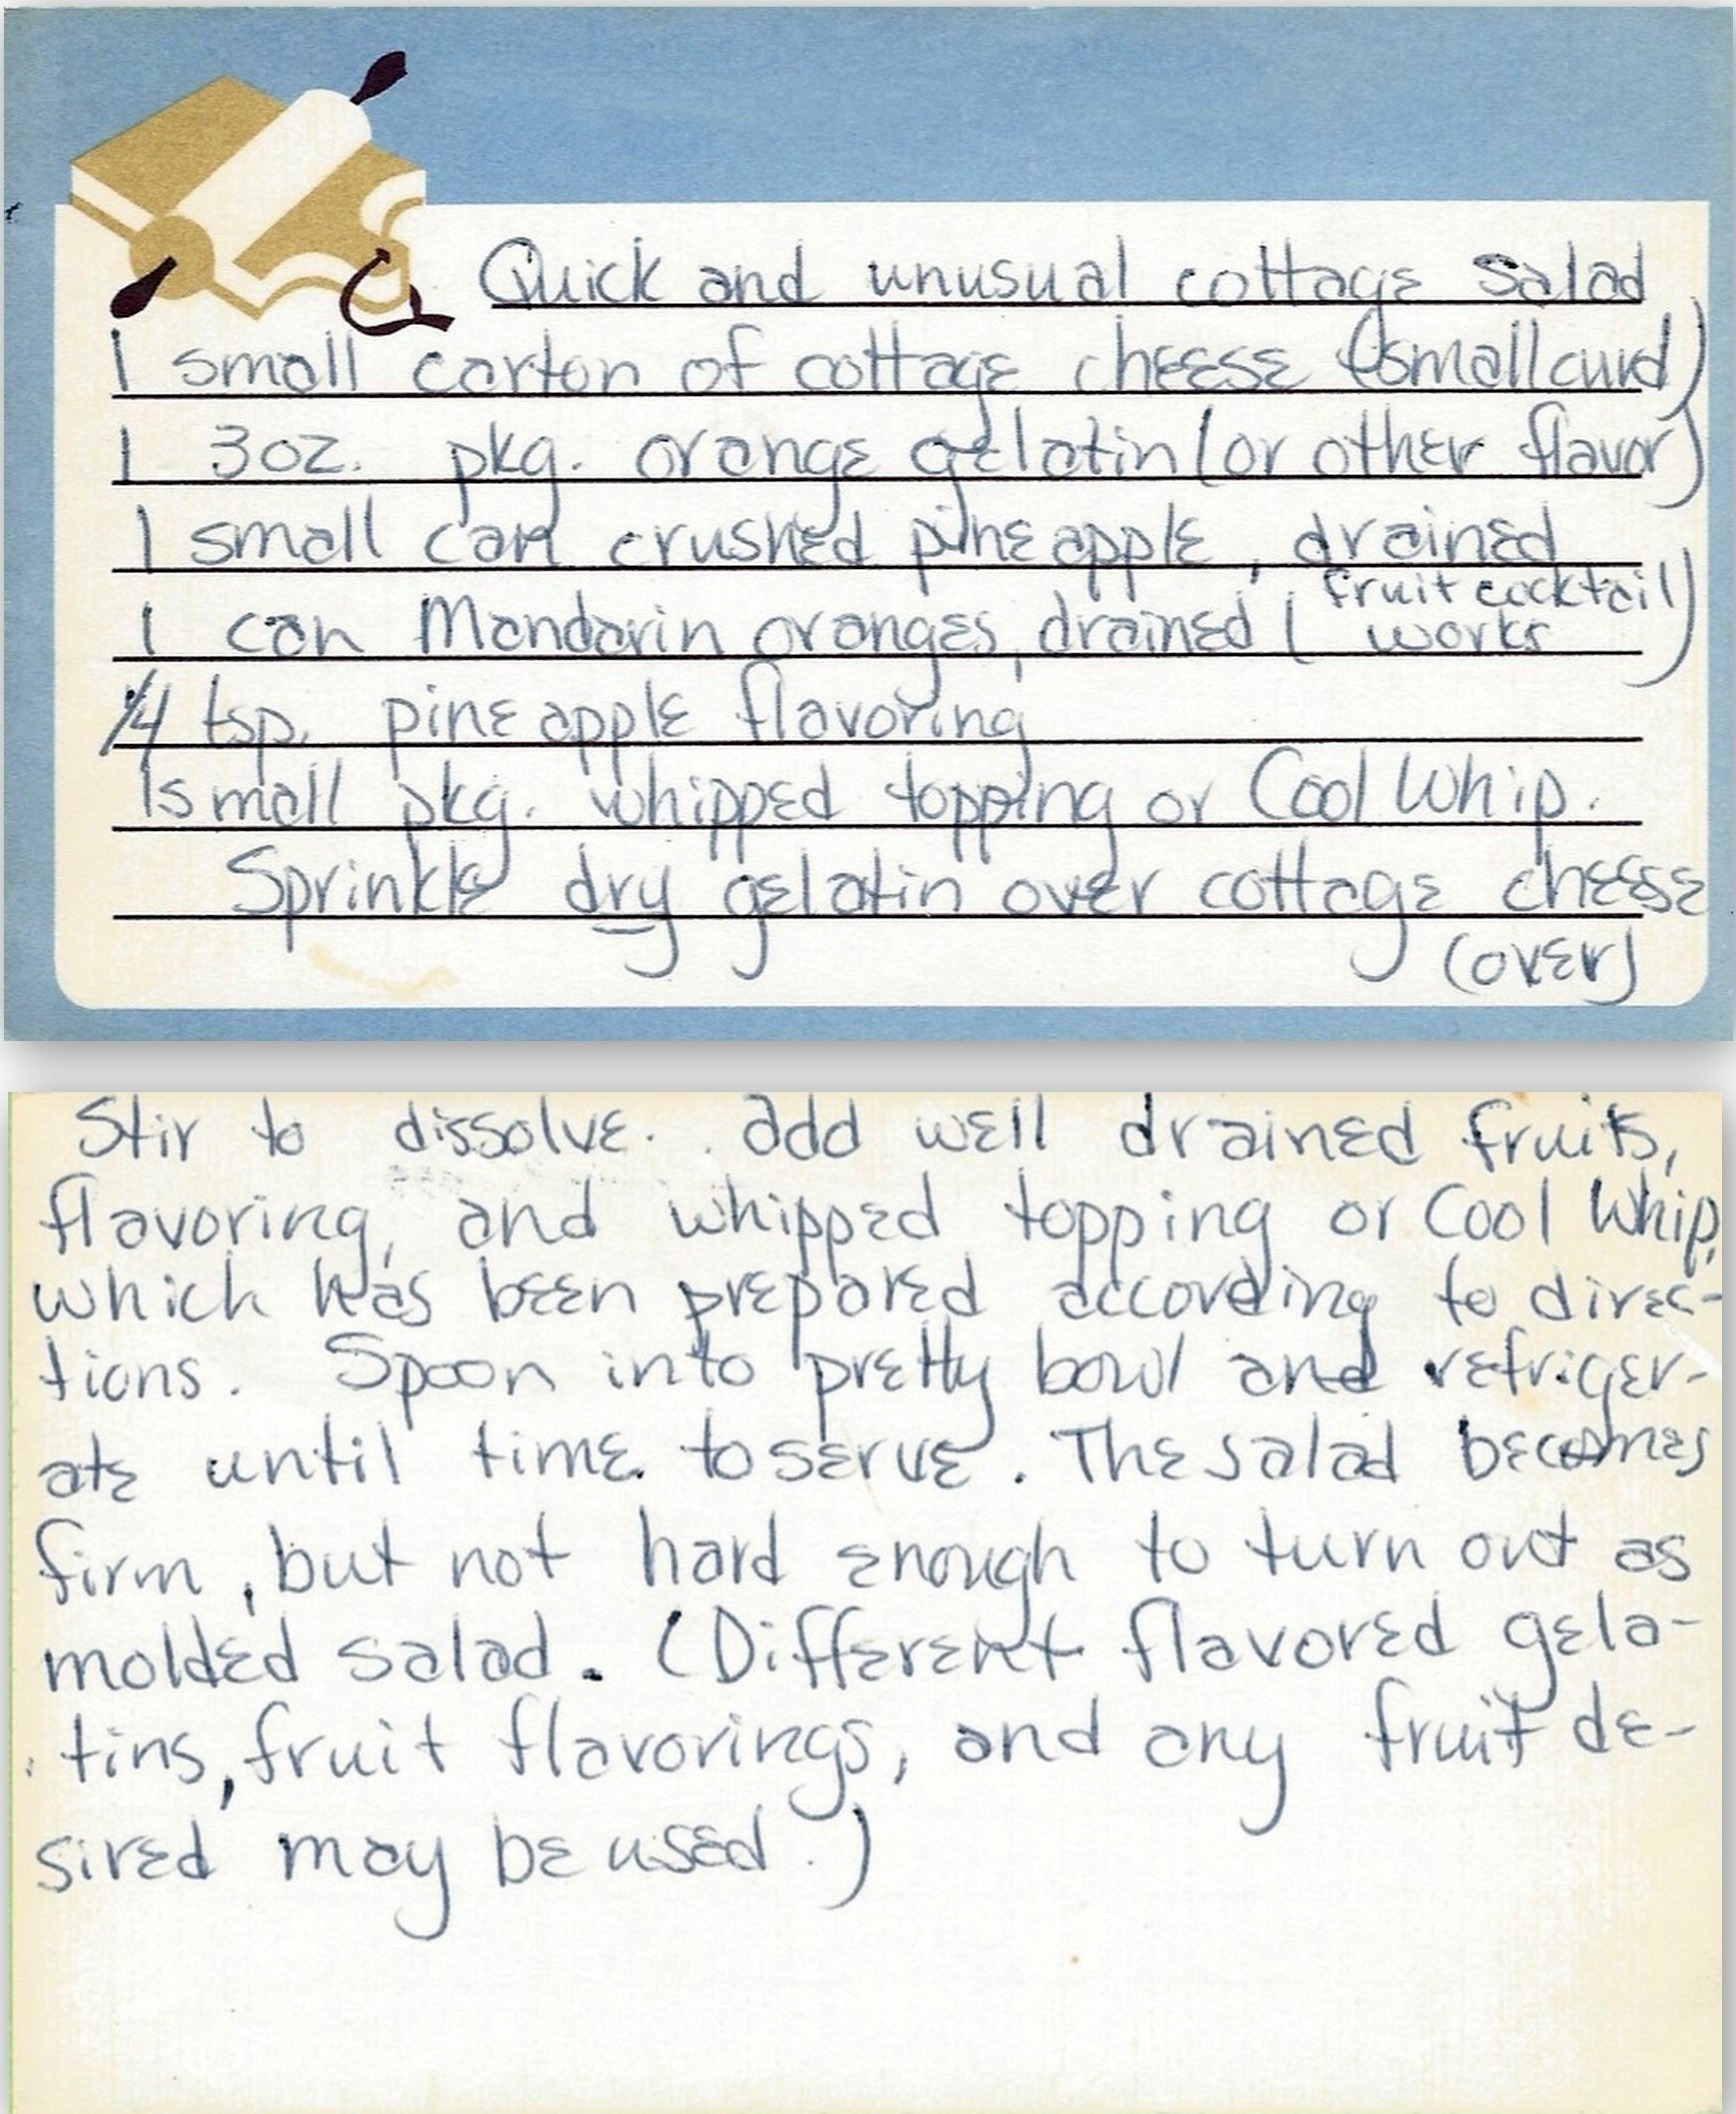 Quick and unusual cottage salad
1 small carton of cottage cheese (small curd)
1 3oz. pkg. orange gelatin (or other flavor)
1 small can crushed pineapple, drained
1 can Mandarin oranges, drained (fruit cocktail works)
1/4 tsp. pineapple flavoring
1 small pkg. whipped topping or Cool Whip.
Sprinkle dry gelatin over cottage cheese
(over)
Stir to dissolve. add well drained fruits,
flavoring, and whipped topping or Cool Whip,
which has been prepared according to direc-
tions. Spoon into pretty bowl and refriger-
ate until time to serve. The salad becomes
firm, but not hard enough to turn out as
molded salad. (Different flavored gela-
tins, fruit flavorings, and any fruit de-
sired may be used.)